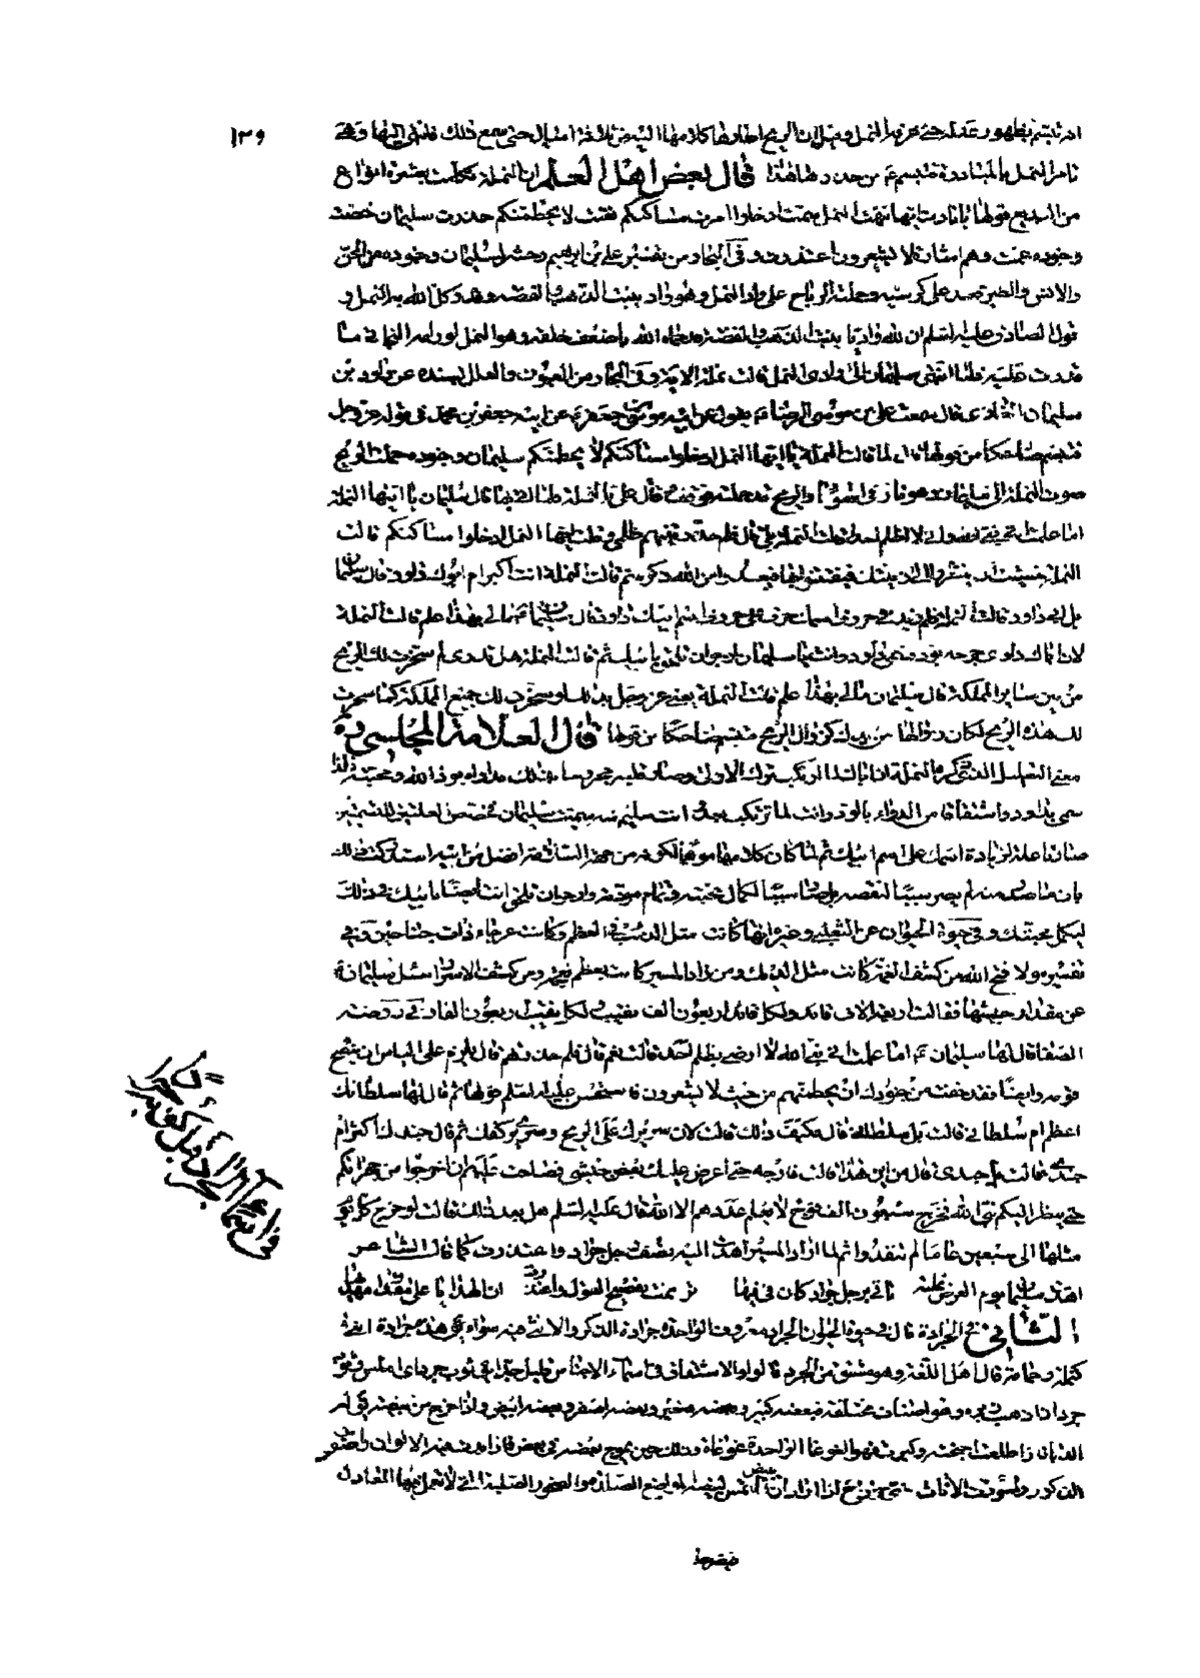 ١٣٩
انه تبسم بظهور عدله حتى عرفه النمل وقيل ان الريح كلامها اليه من ثلاثة اميال حتى سمع ذلك فانتهى اليها وهى
تامر النمل بالمبادرة فتبسم من حذرها هذا قال بعض اهل العلم ان النملة تكلمت بعشرة انواع
من البديع قولها يا نادت ايها نبهت النمل سمت ادخلوا امرت مساكنكم نعتت لا يحطمنكم حذرت سليمان خصت
وجنوده عمت وهم اشارت لا يشعرون اعتذرت وفى البحار من تفسير على بن ابراهيم وحشر لسليمان وجنوده من الجن
والانس والطير قعد على كرسيه وحملته الرياح على واد النمل وهو واد ينبت الذهب والفضه وقد وكل الله به النمل و
قول الصادق عليه السلم ان لله واديا ينبت الذهب والفضة حماه الله باضعف خلقه وهو النمل لو رامه البخاتى ما
قدرت عليه فلما انتهى سليمان الى وادى النمل قالت نملة الاية وفى البحار من العيون والعلل بسنده عن داود بن
سليمان الغازى قال سمعت على بن موسى الرضا يقول عن ابيه موسى بن جعفر عن ابيه جعفر بن محمد فى قوله عز وجل
فتبسم ضاحكا من قولها قال لما قالت النملة يا ايها النمل ادخلوا مساكنكم لا يحطمنكم سليمان وجنوده حملت الريح
صوت النملة الى سليمان وهو مار فى الهوا والريح قد حملته فوقف وقال على بالنملة فلما اتى بها قال سليمان يا ايتها النملة
اما علمت انى نبى الله وانى لا اظلم احدا قالت النملة بلى قال فلم حذرتنيهم ظلمى وقلت يا ايها النمل ادخلوا مساكنكم قالت
النملة خشيت ان ينظروا الى زينتك فيفتتنوا بها فيبعدوا من الله ذكره ثم قالت النملة انت اكبر ام ابوك داود قال سليمان
بل ابى داود قالت النملة فلم زيد فى حروف اسمك حرف على حروف اسم ابيك داود قال سليمان مالى بهذا علم قالت النملة
لان اباك داوى جرحه بود فسمى داود وانت يا سليمان ارجو ان تلحق بابيك ثم قالت النملة هل تدرى لم سخرت لك الريح
من بين ساير المملكة قال سليمان مالى بهذا علم قالت النملة يعنى عز وجل بذلك لو سخرت لك جميع المملكة كما سخرت
لك هذه الريح لكان زوالها من يدك كزوال الريح فتبسم ضاحكا من قولها قال العلامة المجلسى ره
معنى التعليل الذى ذكرته النملة ان اباك لما ارتكب ترك الاولى وصار قلبه مجروحا بذلك فداواه بود الله ومحبته فلذا
سمى بداود اشتقاقا من الدواء بالود وانت لما ترتكب بعد انت سليم منه سميت سليمان فخصوص العلتين للتسميتين
صارتا علة لزيادة اسمك على اسم ابيك ثم لما كان كلامها موهما لكونه من جهة السلامة افضل من ابيه استدركت ذلك
بان ما صدر منه لم يصر سببا لنقصه بل صار سببا لكمال محبته وتمام مودته وارجو ان تلحق انت ايضا بابيك فى ذلك
ليكمل محبتك وفى حيوة الحيوان عن الثعلبى وغيره انها كانت مثل الذئب فى العظم وكانت عرجاء ذات جناحين وفى
تفسير مولا فتح الله من كشف الغمة كانت مثل الديك ومن زاد المسير كانت بعظم نعجة ومن كشف الاسرار اسئل سليمان
عن مقدار جيشها فقالت اربعة الاف قائد ولكل قائد اربعون الف نقيب لكل نقيب اربعون الفا وفى روضة
الصفا قال لها سليمان ع اما علمت انى نبى الله لا ارضى بظلم احد قالت نعم قال فلم حذرتهم قال يلزم على الساس ان ينصح
قومه وايضا فقد خفت من جنودك ان يحطمنهم من حيث لا يشعرون فاستحسن عليه السلم قولها ثم قال لها سلطانك
اعظم ام سلطانى قالت بل سلطانى قال فكيف ذلك قالت لان سريرك على الريح وسريرى كفك ثم قال جندك اكثر ام
جندى قالت جندى قال من اين هذا قالت فارجه حتى اعرض عليك بعض جيشى فصاحت عليهم ان اخرجوا من حجراتكم
حتى ينظر اليكم نبى الله فخرج سبعون الف فوج لا يعلم عددهم الا الله قال عليه السلم هل بعد ذلك قالت لو خرج كل يوم
مثلها الى سبعين عاما لم تنفدوا ثم لما اراد المسير اهدت اليه بنصف رجل جراد واعتذرت كما قال الشاعر
اهدت سليمان يوم العرض نملته تاتى برجل جراد كان فى فيها ترنمت بفصيح القول واعتذرت ان الهدايا على مقدار مهديها
الثانى فى الجرادة قال فى حيوة الحيوان الجراد معروف الواحدة جرادة الذكر والانثى فيه سواء يق هذه جرادة انثى
كنملة وحمامة قال اهل اللغة وهو مشتق من الجرد قالوا والاشتقاق فى اسماء الاجناس قليل جدا يق ثوب جرد اى املس وثوب
جرد اذا ذهب زئبره وهو اصناف مختلفة فبعضه كبير وبعضه صغير وبعضه اصفر وبعضه ابيض واذا خرج من بيضه يق له
الدبا فاذا طلعت اجنحته وكبرت فهو الغوغا الواحدة غوغاة وذلك حين يموج بعضه فى بعض فاذا بدت فيه الالوان واصفر
الذكور واسودت الاناث سمى جرادا ح اذا اراد ان يبيض التمس لبيضه المواضع الصلدة والصخور الصلبة التى لا تعمل فيها المعاول
فيضربها